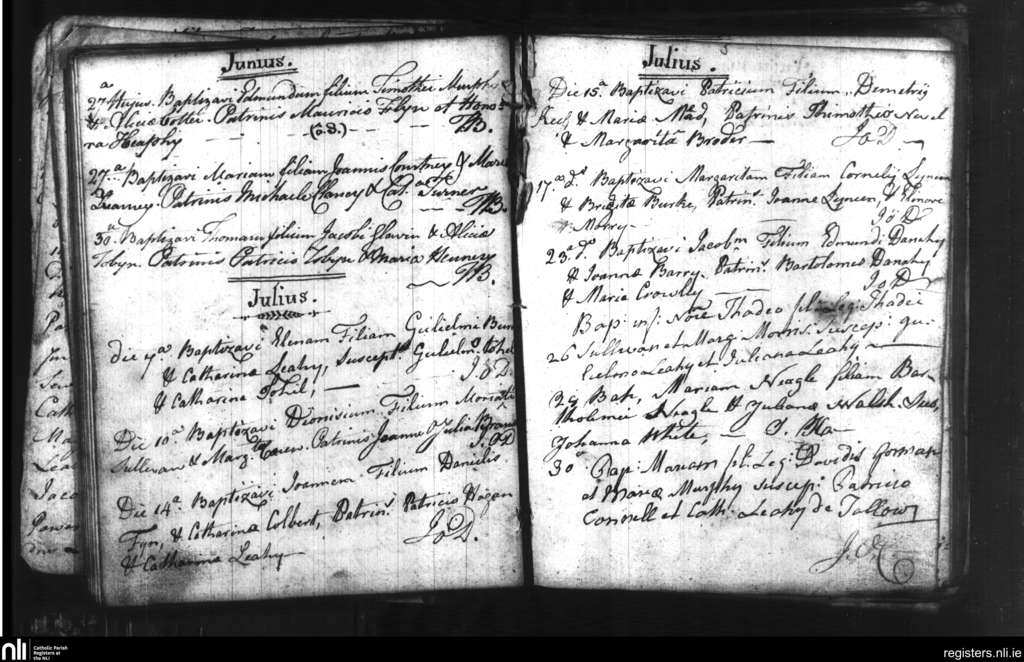 Junius.
27.a Hujus. Baptizavi Edmundum filium Timothei Murphy
& Aliciæ Cotter. Patrinis Mauricio Tobyn et Hono-
ra Heaphy
TB.
27.a Baptizavi Mariam filiam Joannis Courtney & Mariæ
Kearney. Patrinis Michaele Clancy & Cat. Turner
TB.
30.a Baptizavi Thomam filium Jacobi Flavin & Aliciæ
Tobyn. Patrinis Patricio Tobyn & Maria Henney
TB.
Julius.
die 7.a Baptizavi Elenam Filiam Gulielmi
& Catharinæ Leahy, Suscept. Gulielmo
& Catharina Tohil,
J.O.D.
Die 10.a Baptizavi Dionisium Filium
Sullivan & Marg. Patrinis Joanne & Julia
J.O.D
Die 14.a Baptizavi Joannem Filium Danielis
Fyn, & Catharinæ Colbert, Patrin. Patricio Hogan
& Catharina Leahy
JoD.
Julius.
Die 15.a Baptizavi Patricium Filium Demetrij
Keef & Mariæ Patrinis Thimotheo
& Margarita Broder
JoD
17.a d. Baptizavi Margaritam Filiam Cornelij Lyneen
& Brigitæ Burke, Patrin. Joanne Lyneen, & Honore
Morry.
JoD
23.a d. Baptizavi Jacobm Filium Edmundi Danahy
& Joannæ Barry. Patrin. Bartolomeo Danahy
& Maria Crowlly
JoD
Bap: inf: Noie Thadeo fil: Leg: Thadei
26 Sullivan et Marg: Morris: Suscep: Gu-
lielmo Leahy et Juliana Leahy
29 Bap, Mariam Neagle filiam Bar-
tholomei Neagle & Julianæ Walsh Sus,
Johanna White,
30 Bap: Mariam fil: Leg: Davidis Gorman
et Mariæ Murphy Suscep: Patricio
Connell et Cath: Leahy de Tallow
nli
Catholic Parish
Registers at
the NLI
registers.nli.ie